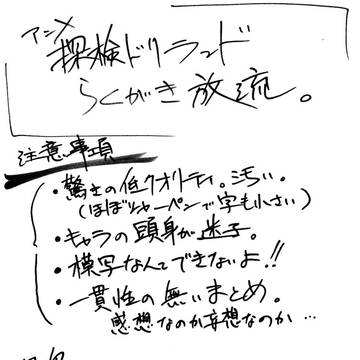 アニメ
探検ドリランド
らくがき放流。
注意事項
・驚きの低クオリティ。汚い。
(ほぼシャーペンで字も小さい)
・キャラの頭身が迷子。
・模写なんてできないよ!!
・一貫性の無いまとめ。
感想なのか妄想なのか…